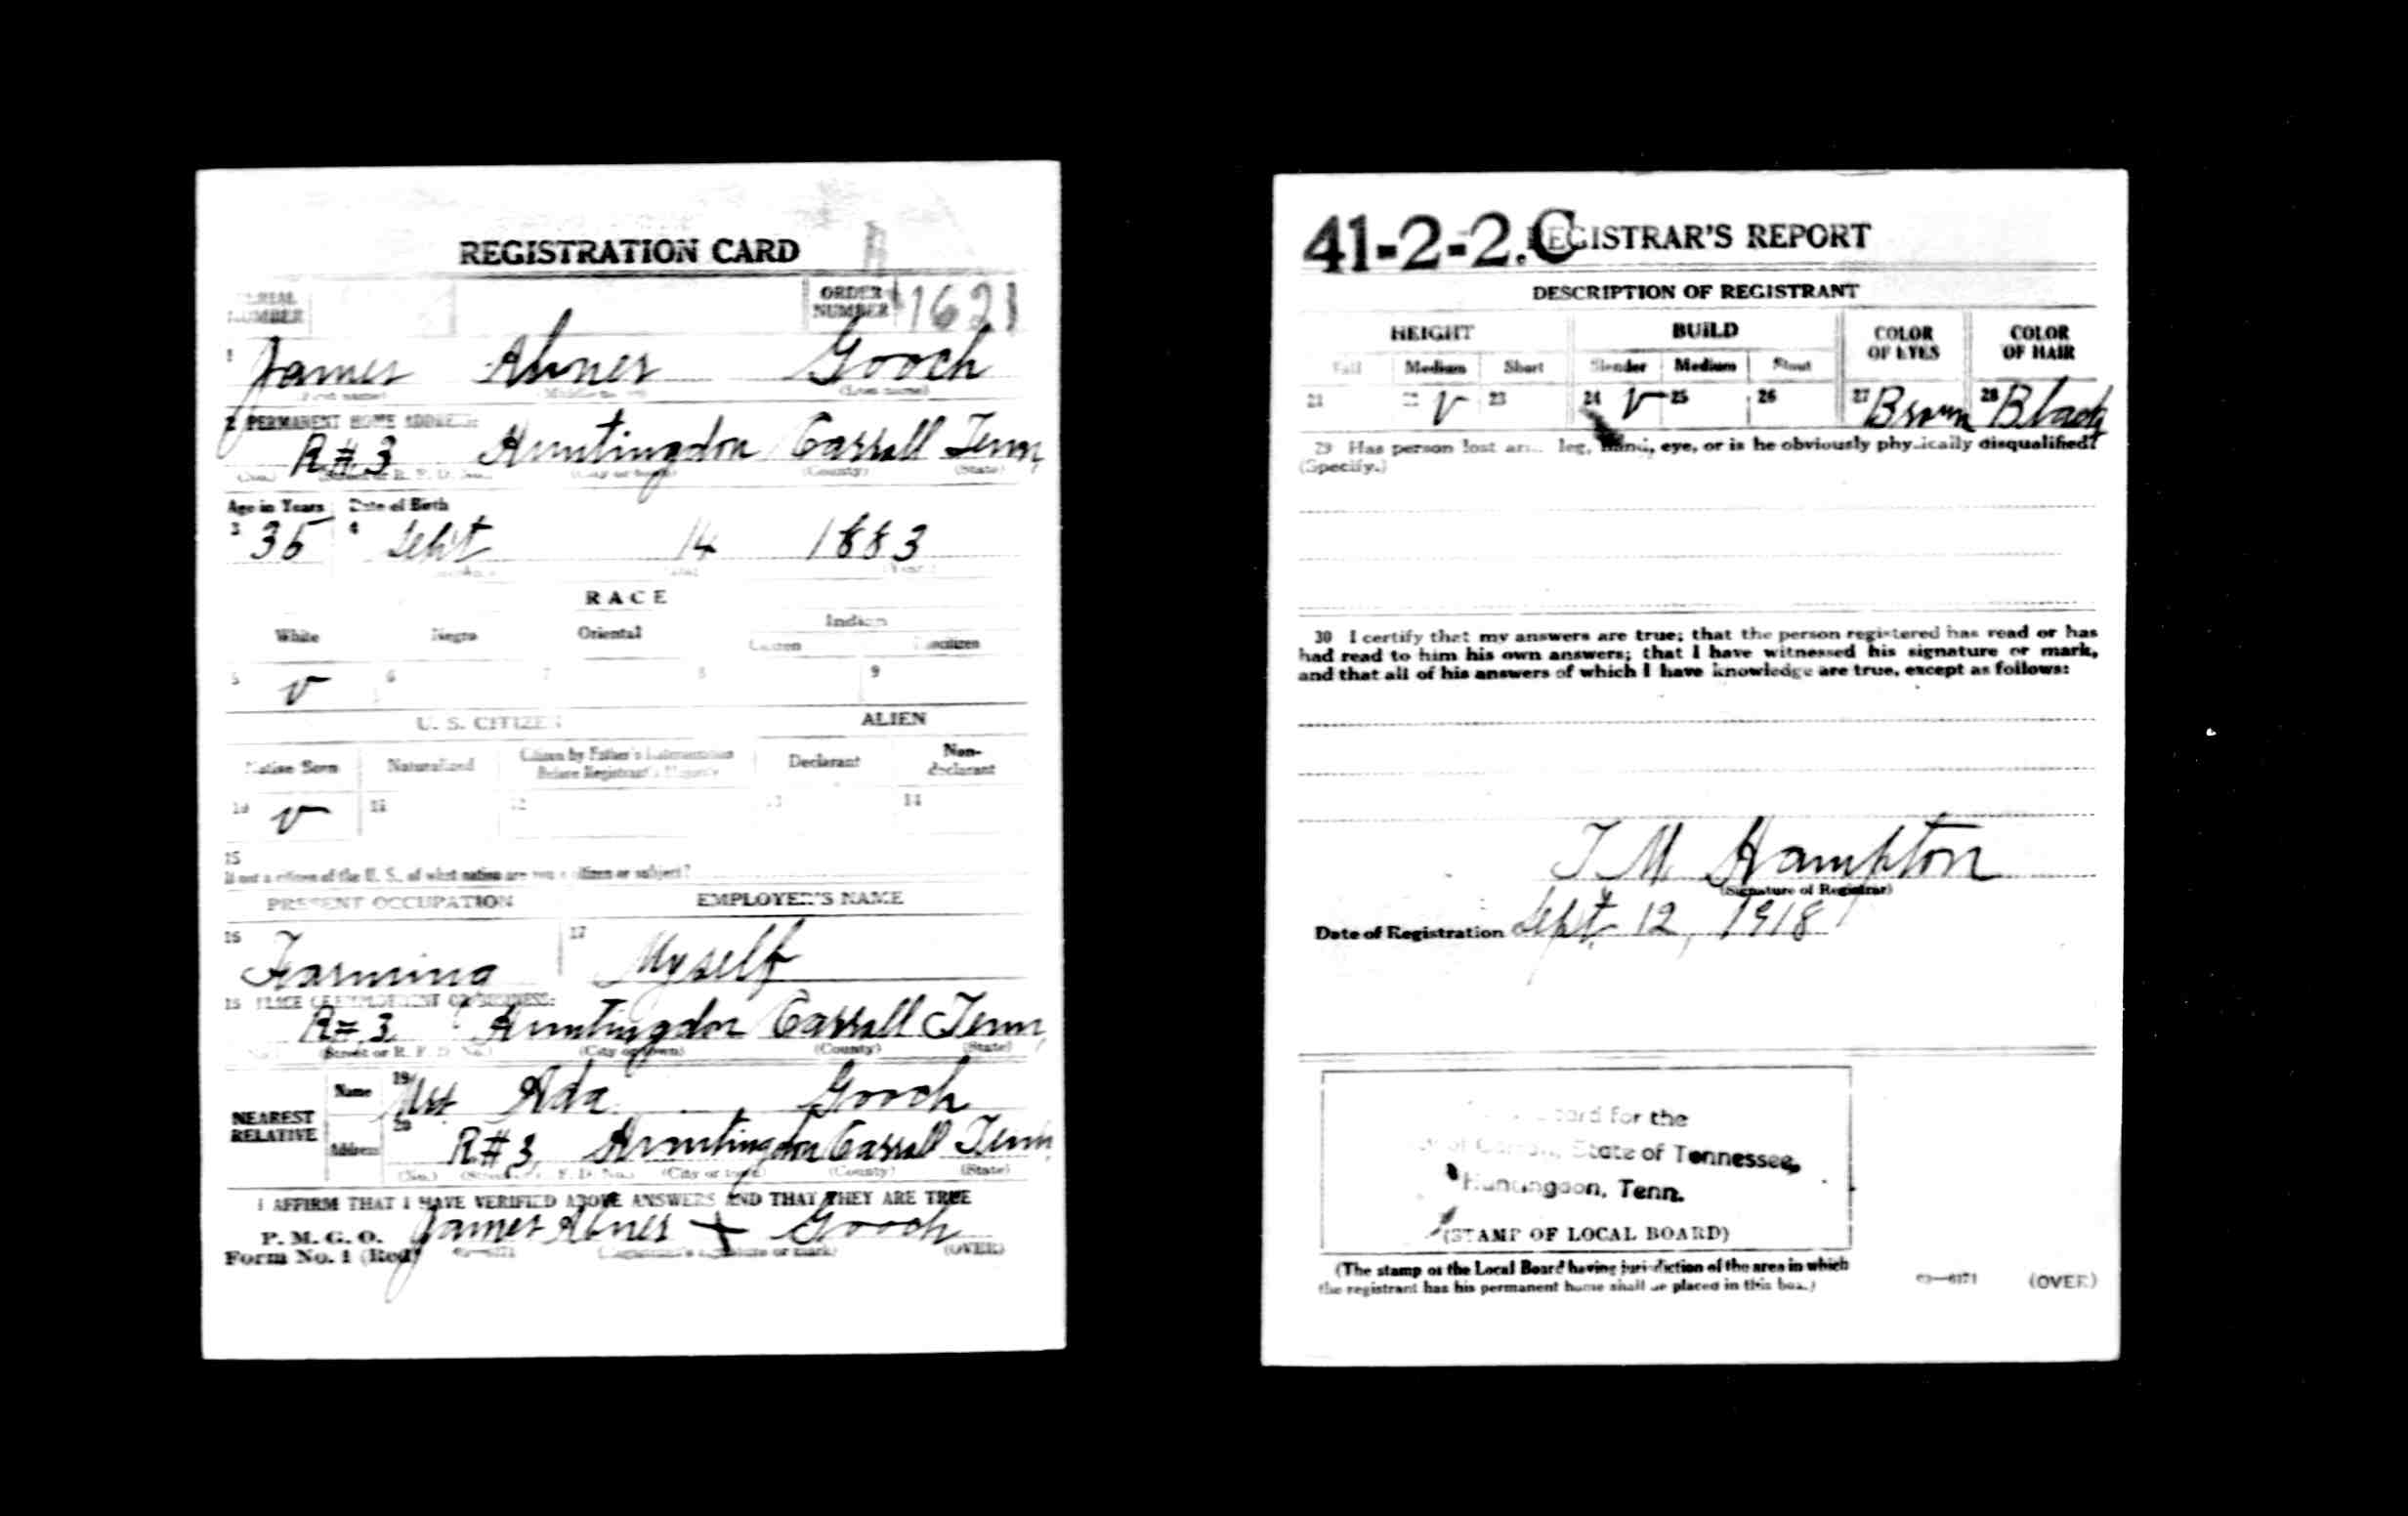 REGISTRATION CARD
SERIAL NUMBER
ORDER NUMBER 1621
1 James Abner Gooch
(First name) (Middle name) (Last name)
2 PERMANENT HOME ADDRESS:
R#3 Huntingdon Carroll Tenn
(No.) (Street or R. F. D. No.) (City or town) (County) (State)
Age in Years Date of Birth
3 35 4 Sept 14 1883
RACE
White Negro Oriental Indian
Citizen Noncitizen
5 v 6 7 8 9
U. S. CITIZEN ALIEN
Native Born Naturalized Citizen by Father's Naturalization Before Registrant's Majority Declarant Non-declarant
10 v 11 12 13 14
15
If not a citizen of the U. S., of what nation are you a citizen or subject?
PRESENT OCCUPATION EMPLOYER'S NAME
16 Farming 17 Myself
18 PLACE OF EMPLOYMENT OR BUSINESS:
R=3 Huntingdon Carroll Tenn
(No.) (Street or R. F. D. No.) (City or town) (County) (State)
NEAREST RELATIVE
Name 19 Mrs Ada Gooch
Address 20 R#3 Huntingdon Carroll Tenn
(No.) (Street or R. F. D. No.) (City or town) (County) (State)
I AFFIRM THAT I HAVE VERIFIED ABOVE ANSWERS AND THAT THEY ARE TRUE
P. M. G. O.
Form No. 1 (Red) James Abner + Gooch
(Registrant's signature or mark) (OVER)
41-2-2.C REGISTRAR'S REPORT
DESCRIPTION OF REGISTRANT
HEIGHT BUILD COLOR OF EYES COLOR OF HAIR
Tall Medium Short Slender Medium Stout
21 22 v 23 24 v 25 26 27 Brown 28 Black
29 Has person lost arm, leg, hand, eye, or is he obviously physically disqualified?
(Specify.)
30 I certify that my answers are true; that the person registered has read or has
had read to him his own answers; that I have witnessed his signature or mark,
and that all of his answers of which I have knowledge are true, except as follows:
T M Hampton
(Signature of Registrar)
Date of Registration Sept. 12, 1918
Board for the
of Carroll, State of Tennessee,
Huntingdon, Tenn.
(STAMP OF LOCAL BOARD)
(The stamp of the Local Board having jurisdiction of the area in which
the registrant has his permanent home shall be placed in this box.)
63—6171 (OVER)